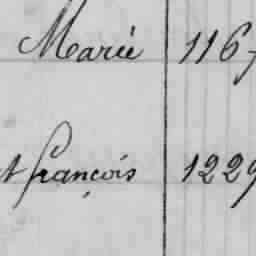 Marie 1167
t françois 1229